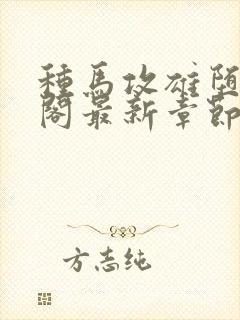 種馬攻雄堕
閣最新章節
方志纯